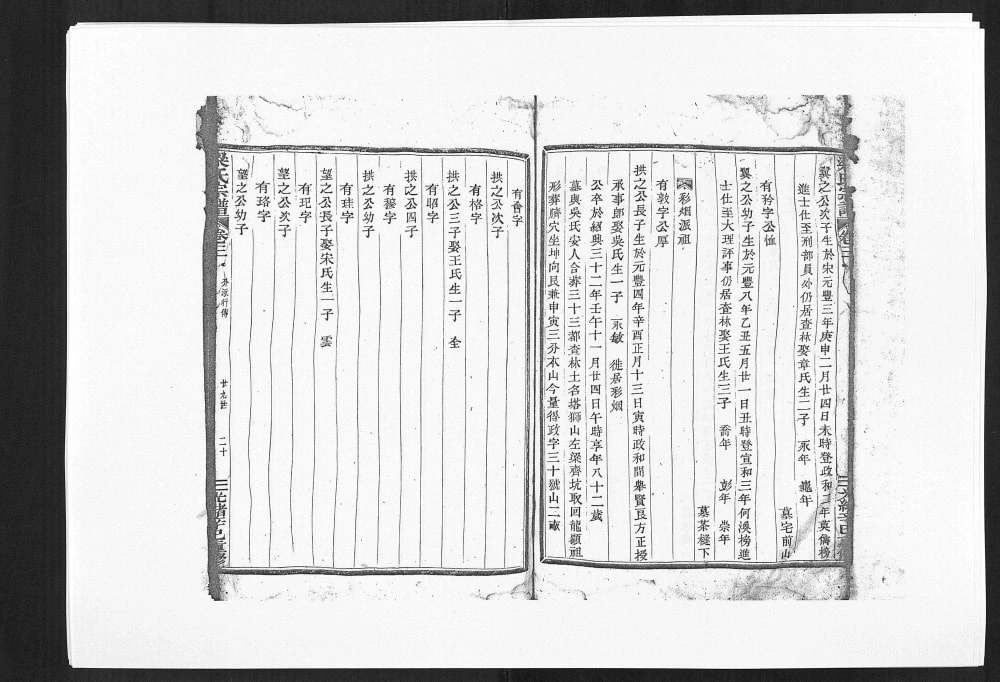 翼之公次子生於宋元豐三年庚申二月廿四日未時登政和二年莫儔榜
進士仕至刑部員外仍居查林娶章氏生二子 永年 龜年
墓宅前山
有矜字公恤
翼之公幼子生於元豐八年乙丑五月廿一日丑時登宣和三年何渙榜進
士仕至大理評事仍居查林娶王氏生三子 喬年 彭年 崇年
墓茶磓下
彩烟派祖
有敦字公厚
拱之公長子生於元豐四年辛酉正月十三日寅時政和間舉賢良方正授
承事郎娶吳氏生一子 永敏 徙居彩烟
公卒於紹興三十二年壬午十一月廿四日午時享年八十二歲
墓與吳氏安人合葬三十三都查林土名塔獅山左梁齊坑取回龍顧祖
形葬臍穴坐坤向艮兼申寅三分本山今量得政字三十號山二畝
有會字
拱之公次子
有格字
拱之公三子娶王氏生一子 全
有昭字
拱之公四子
有馨字
拱之公幼子
有珪字
望之公長子娶宋氏生一子 雲
有玘字
望之公次子
有珞字
望之公幼子
梁氏宗譜 卷三
分派行傳
廿九世
二十